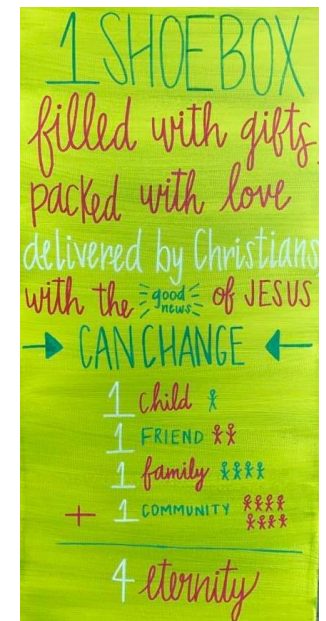 1 SHOEBOX
filled with gifts
packed with love
delivered by Christians
with the good news of JESUS
CAN CHANGE
1 child
1 FRIEND
1 family
+ 1 COMMUNITY
4 eternity